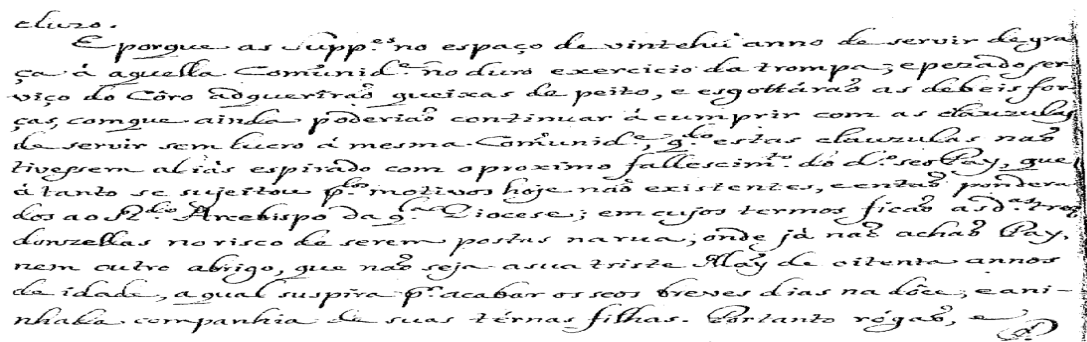 cluzo.
E porque as Supp.es no espaço de vintehũ anno de servir de gra
ça á aquella Comũnid.e no duro exercicio da trompa; e pezado ser
viço do Côro adquerîraõ queixas de peito, e esgottáraõ as debeis for
ças, comque ainda poderiaõ continuar á cumprir com as clauzulas
de servir sem lucro á mesma Comũnid.e, q.do estas clauzulas naõ
tivessem aliás espirado com o proximo fallescim.to do d.o seo Pay, que
á tanto se sujeitou p.los motivos hoje naõ existentes, e entaõ pondera
dos ao Arcebispo da Diocese; em cujos termos ficaõ as d.as tres
donzellas no risco de serem postas na rua; onde já naõ achaõ Pay,
nem outro abrigo, que naõ seja a sua triste Mãy de oitenta annos
de idade, a qual suspira p.r acabar os seos breves dias na dôce, e ani-
nhada companhia de suas térnas filhas. Portanto rógaõ, e